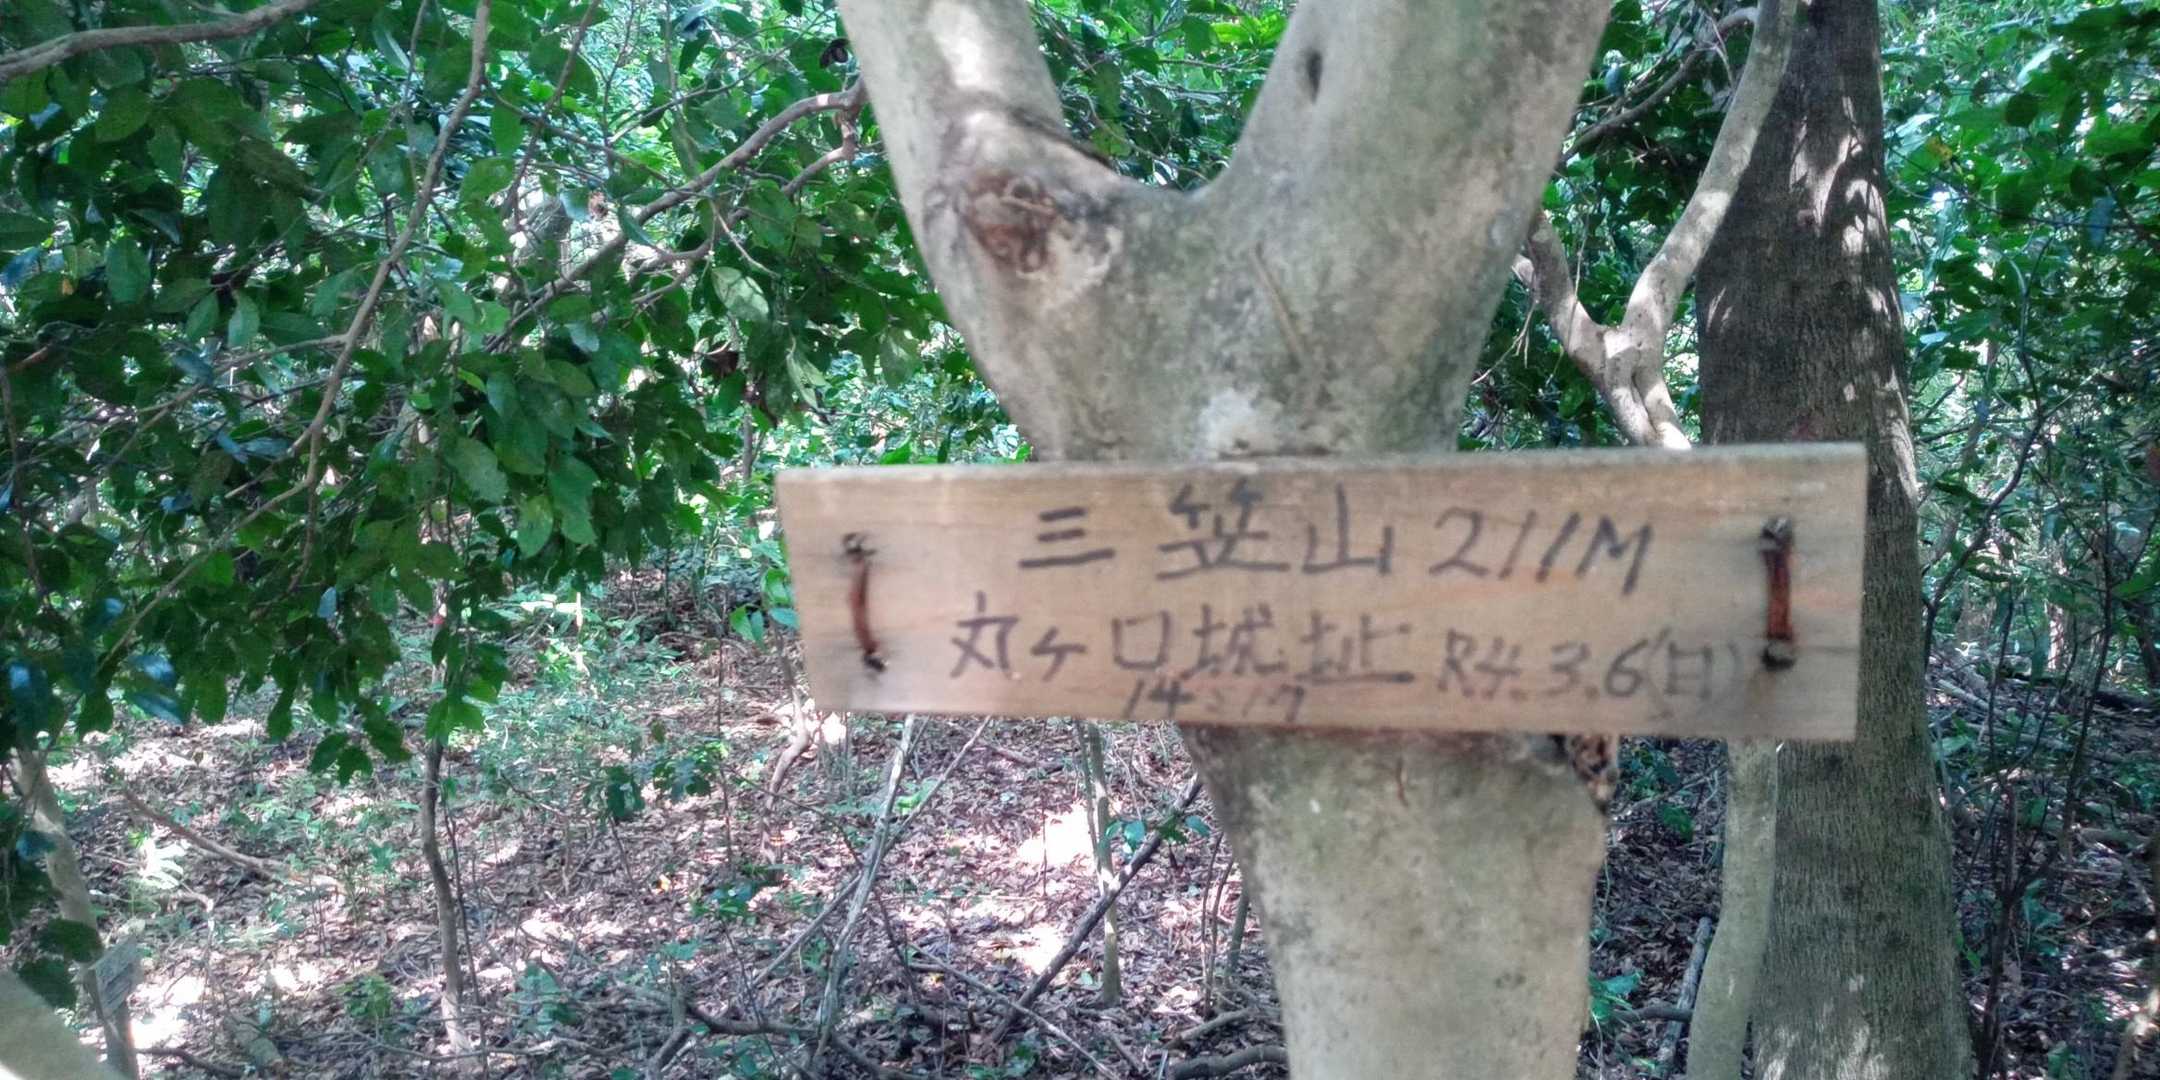 三笠山 211M
丸ヶ口城址 R4.3.6(日)
14:17